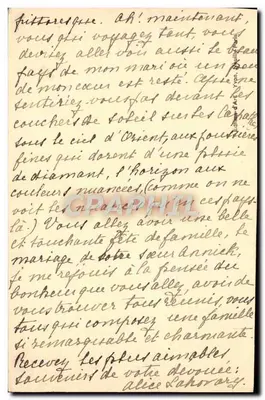 pittoresque. Ah! maintenant,
vous qui voyagez tant, vous
devriez aller voir aussi le beau
pays de mon mari où un peu
de mon cœur est resté.
sentiriez-vous pas devant les
couchers de soleil sur les
sous le ciel d'Orient, aux poussières
fines qui dorent d'une pluie
de diamant, l'horizon aux
couleurs nuancées, (comme on ne
voit les nuances que dans ces pays-
là.) Vous allez avoir une belle
et touchante fête de famille, le
mariage de votre sœur Annick,
je me réjouis à la pensée du
bonheur que vous allez avoir de
vous trouver tous réunis, vous
tous qui composez une famille
si remarquable et charmante.
Recevez les plus aimables
souvenirs de votre dévouée:
Alice Lahovary